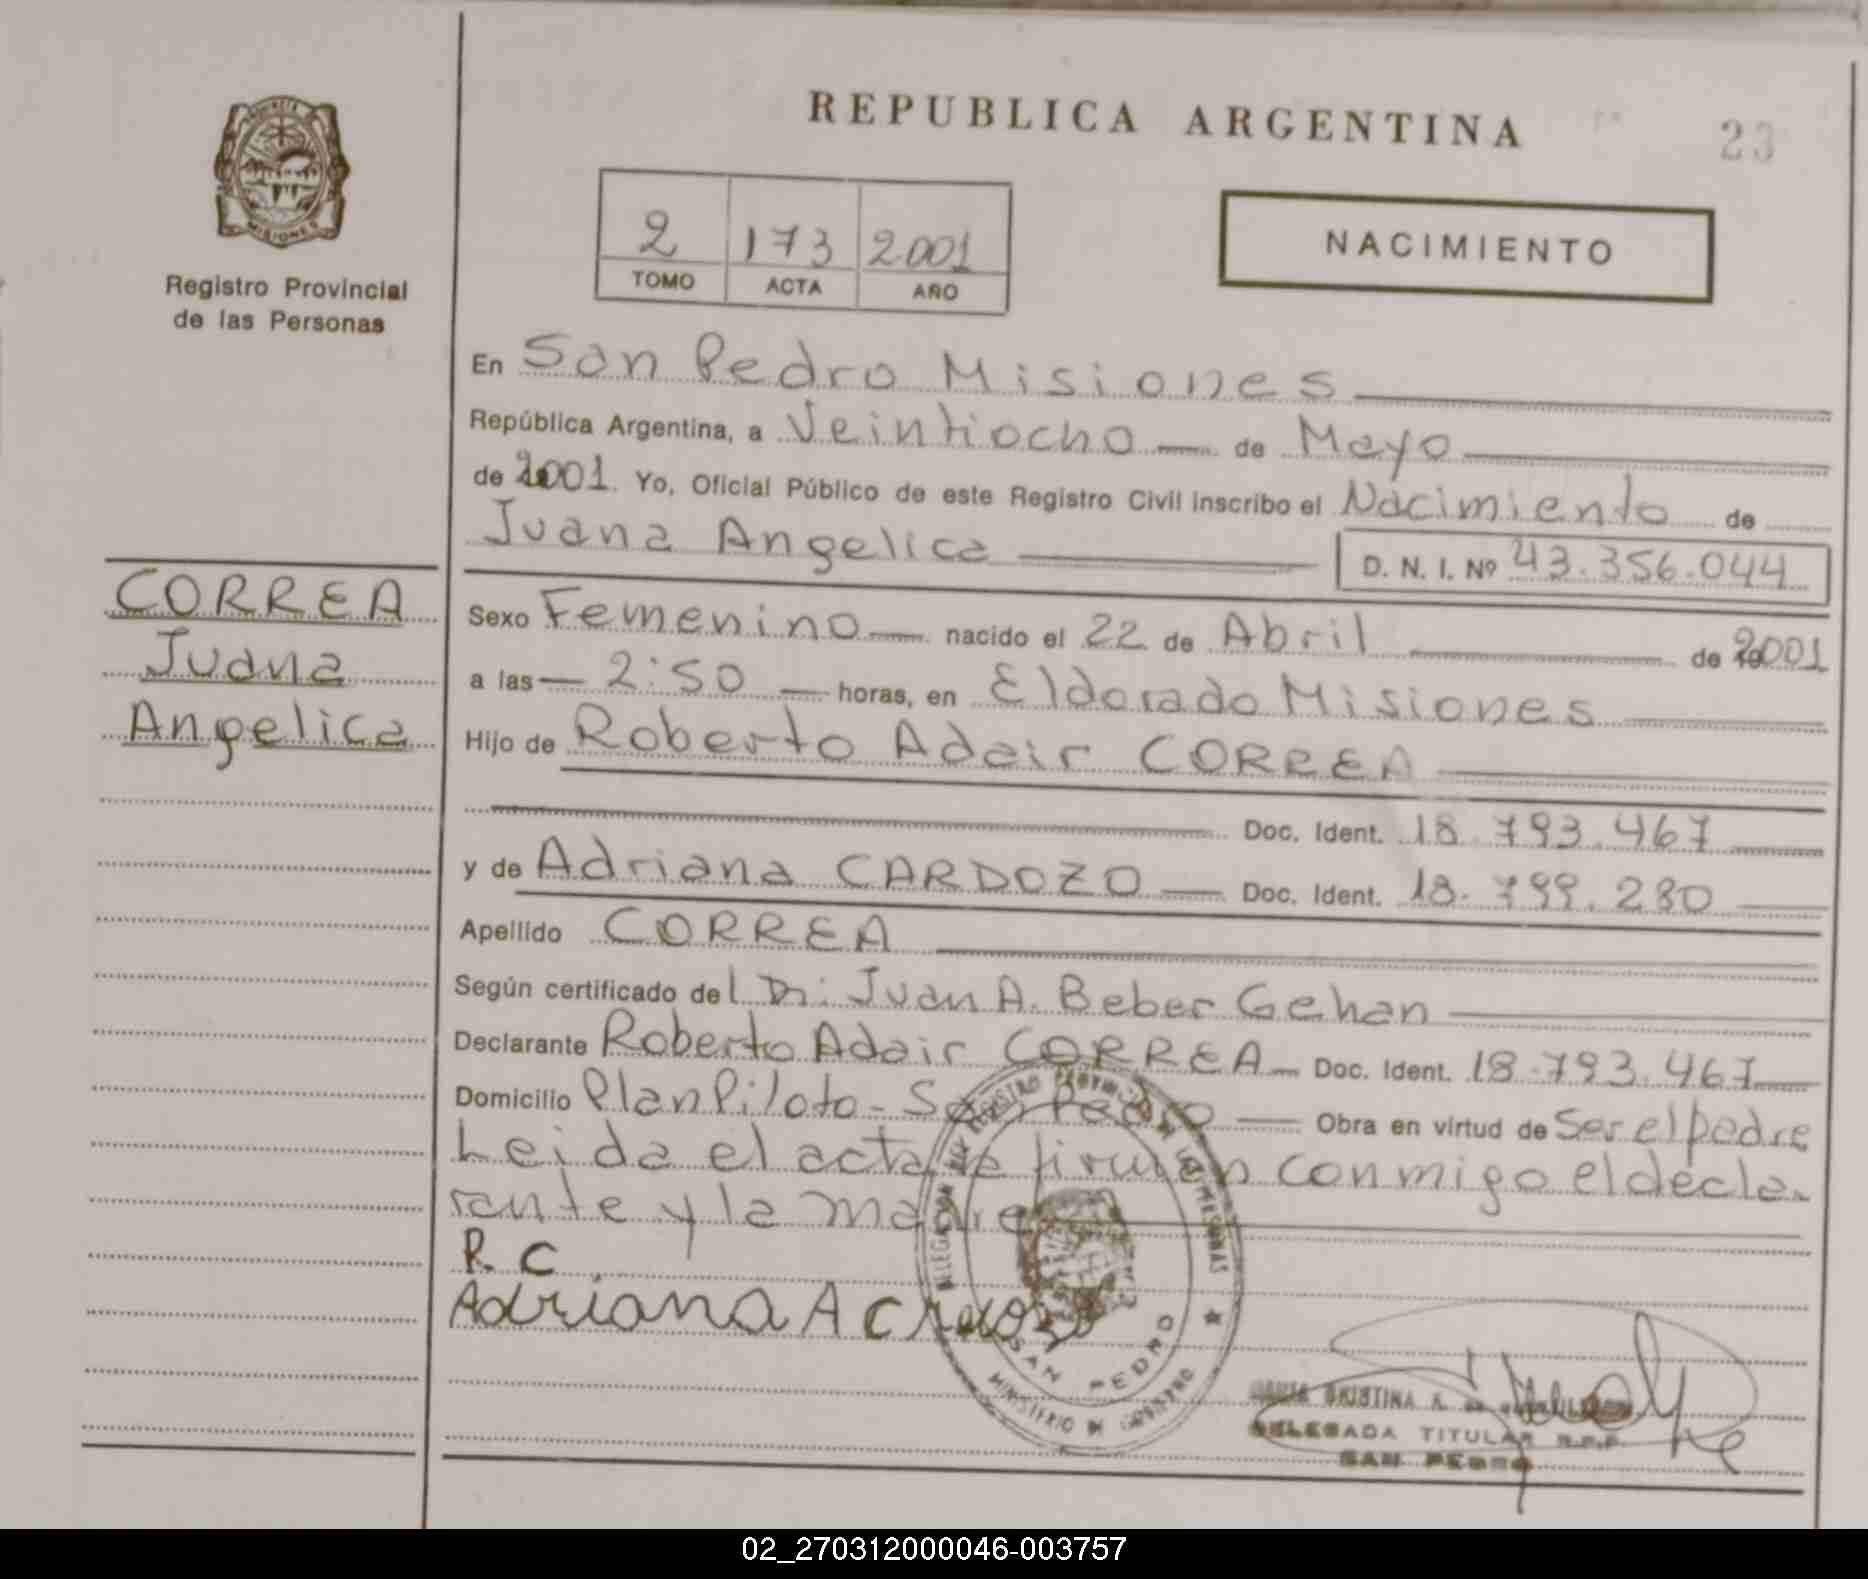 REPUBLICA ARGENTINA
23
PROVINCIA
MISIONES
Registro Provincial
de las Personas
2 173 2001
TOMO ACTA AÑO
NACIMIENTO
En San Pedro Misiones
República Argentina, a Veintiocho de Mayo
de 2001. Yo, Oficial Público de este Registro Civil inscribo el Nacimiento de
Juana Angelica D. N. I. Nº 43.356.044
CORREA
Juana
Angelica
Sexo Femenino nacido el 22 de Abril de 2001
a las 2:50 horas, en Eldorado Misiones
Hijo de Roberto Adair CORREA
Doc. Ident. 18.793.467
y de Adriana CARDOZO Doc. Ident. 18.799.280
Apellido CORREA
Según certificado del Dr. Juan A. Beber Gehan
Declarante Roberto Adair CORREA Doc. Ident. 18.793.467
Domicilio Plan Piloto - San Pedro Obra en virtud de Ser el padre
Leida el acta la firman conmigo el decla-
rante y la madre
R. C
Adriana A
SAN PEDRO
DELEGADA TITULAR R.P.P.
SAN PEDRO
02_270312000046-003757